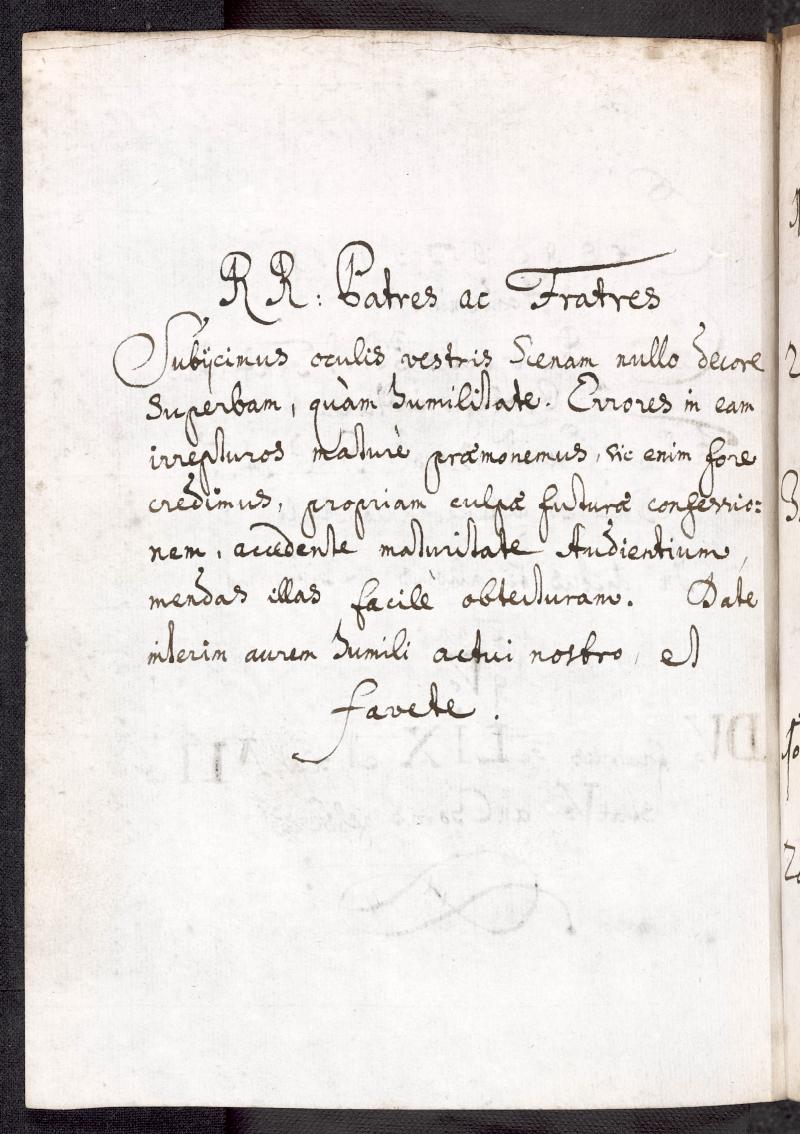 RR: Patres ac Fratres
Subijcimus oculis vestris Scenam nullo decore
superbam, quàm humilitate. Errores in eam
irrepturos maturè præmonemus, sic enim fore
credimus, propriam culpæ futuræ confessio:
nem, accedente maturitate Audientium,
mendas illas facilè obtecturam. Date
interim aurem humili actui nostro, et
favete.